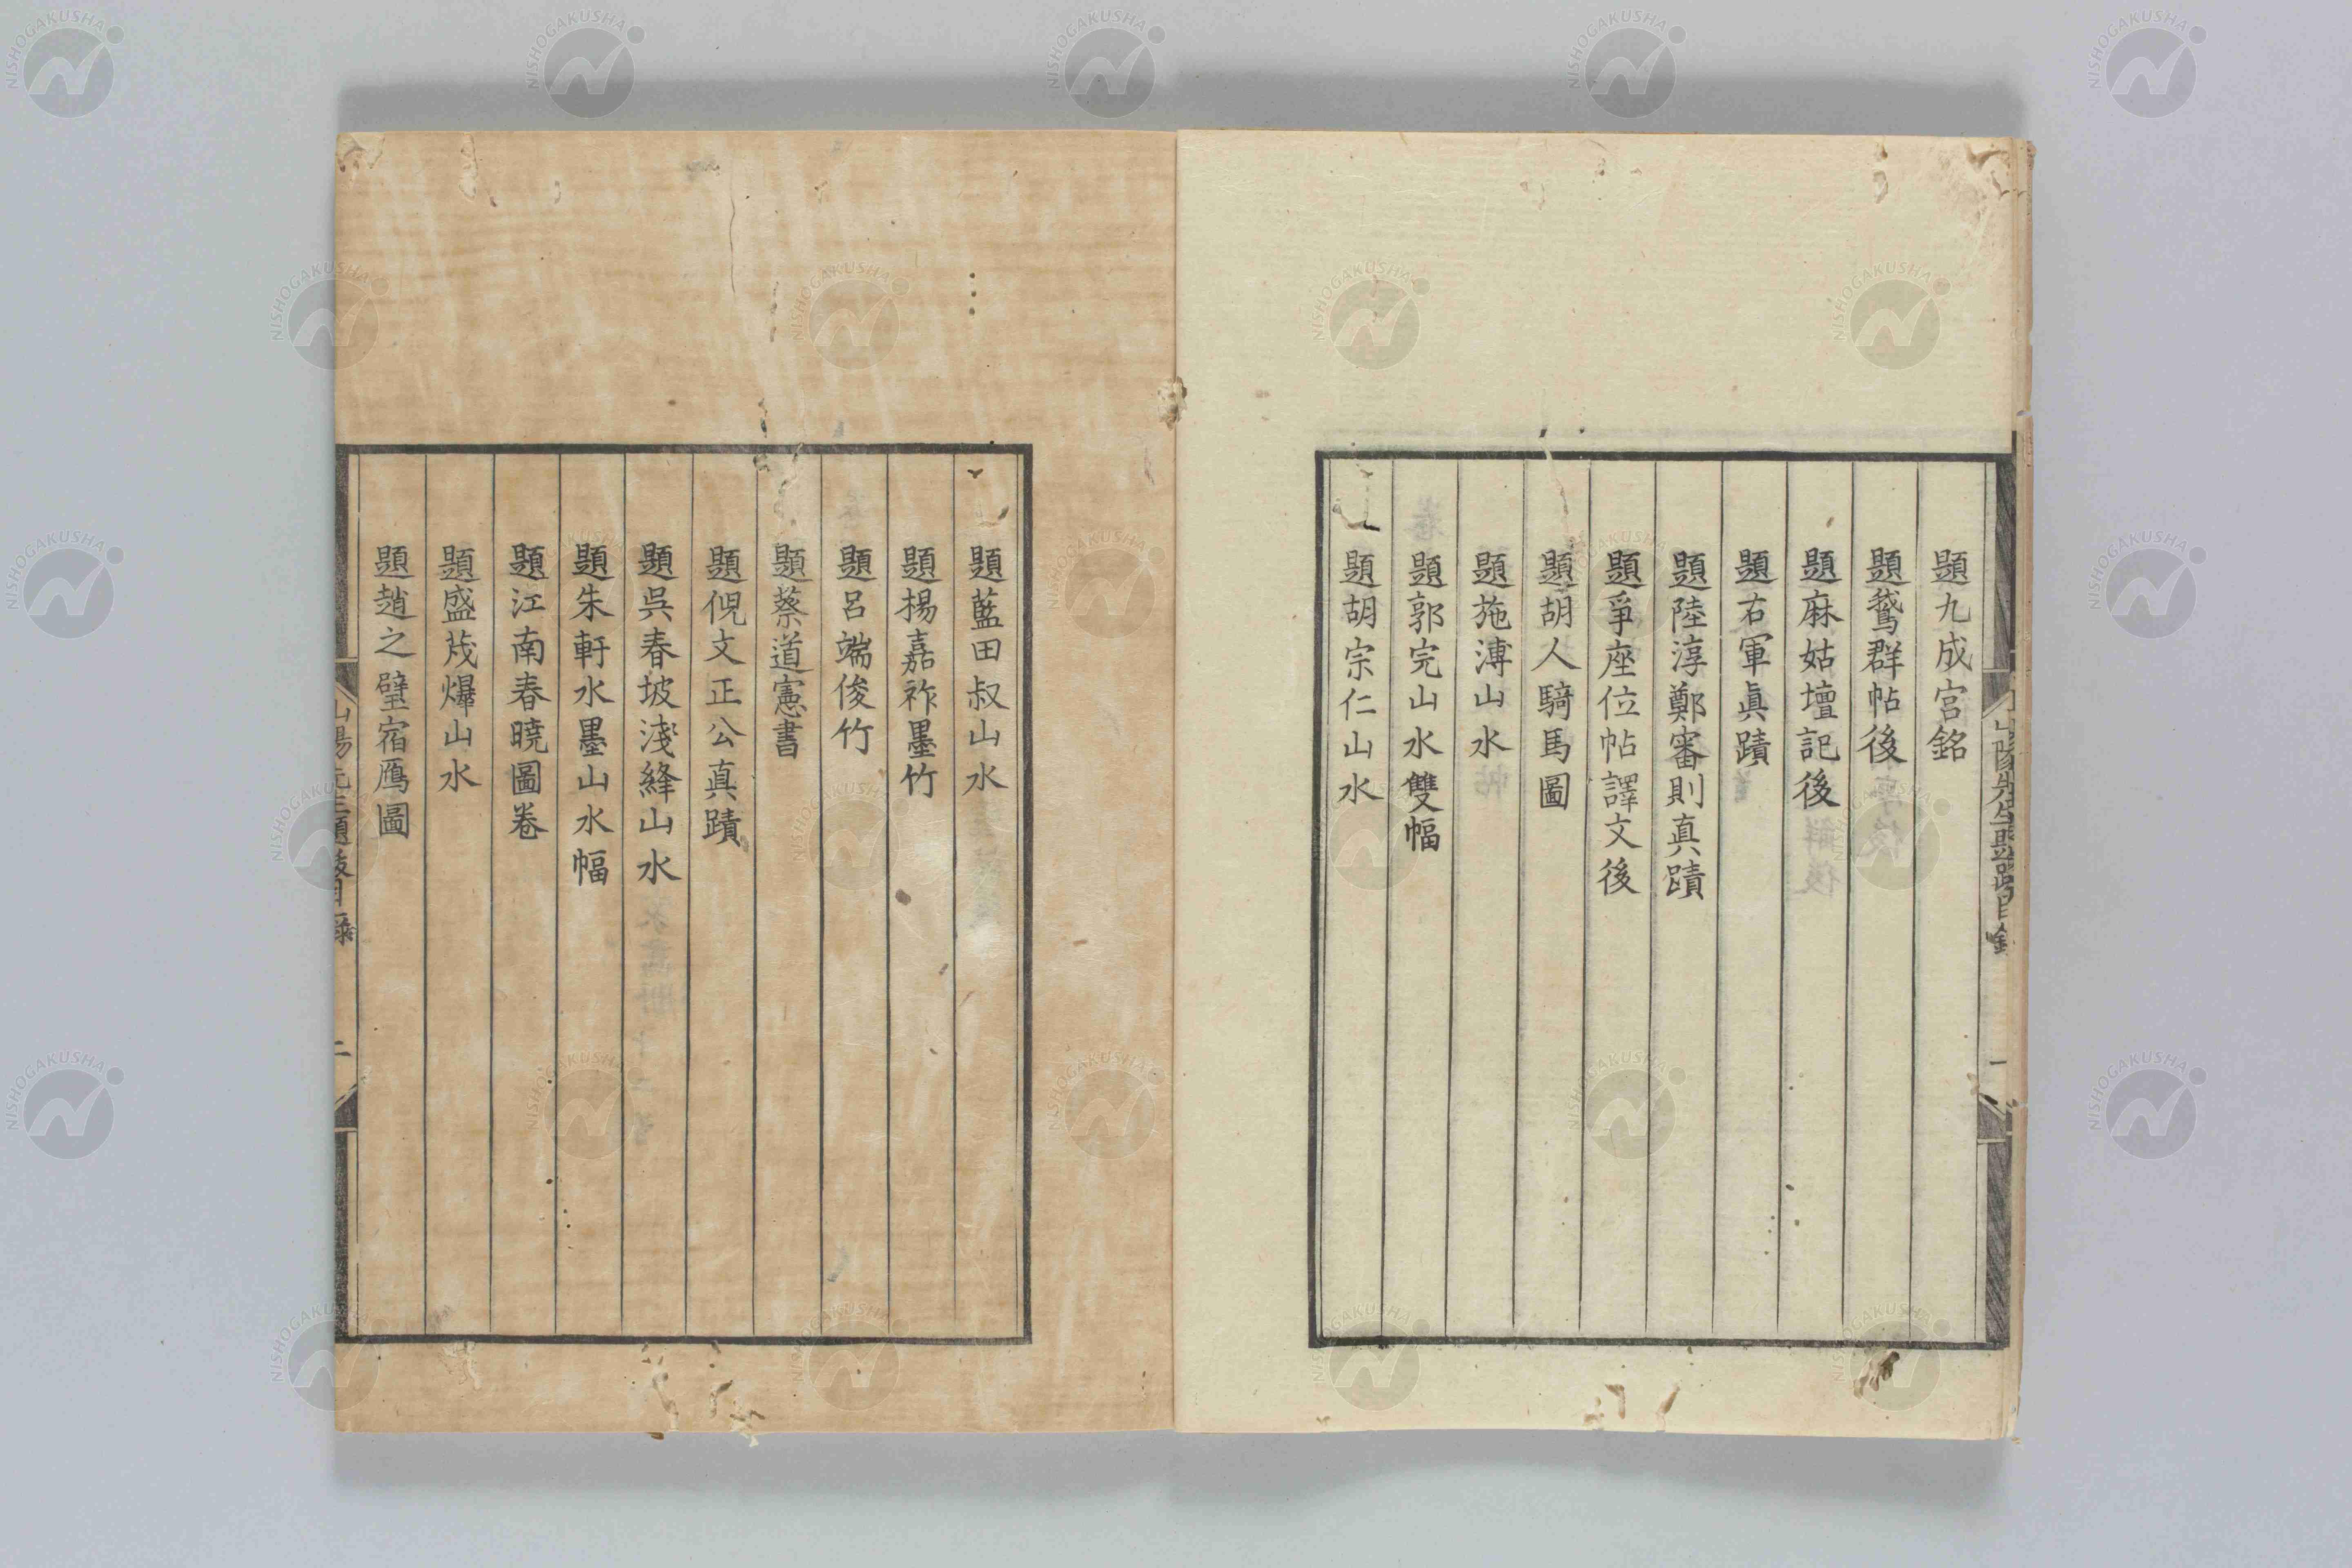 題九成宮銘
題鵞群帖後
題麻姑壇記後
題右軍眞蹟
題陸淳鄭審則真蹟
題爭座位帖譯文後
題胡人騎馬圖
題施溥山水
題郭完山水雙幅
題胡宗仁山水
題藍田叔山水
題楊嘉祚墨竹
題呂端俊竹
題蔡道憲書
題倪文正公真蹟
題吳春坡淺絳山水
題朱軒水墨山水幅
題江南春曉圖卷
題盛茂爗山水
題趙之璧宿鴈圖
山陽先生題跋目錄
一
二
NISHOGAKUSHA